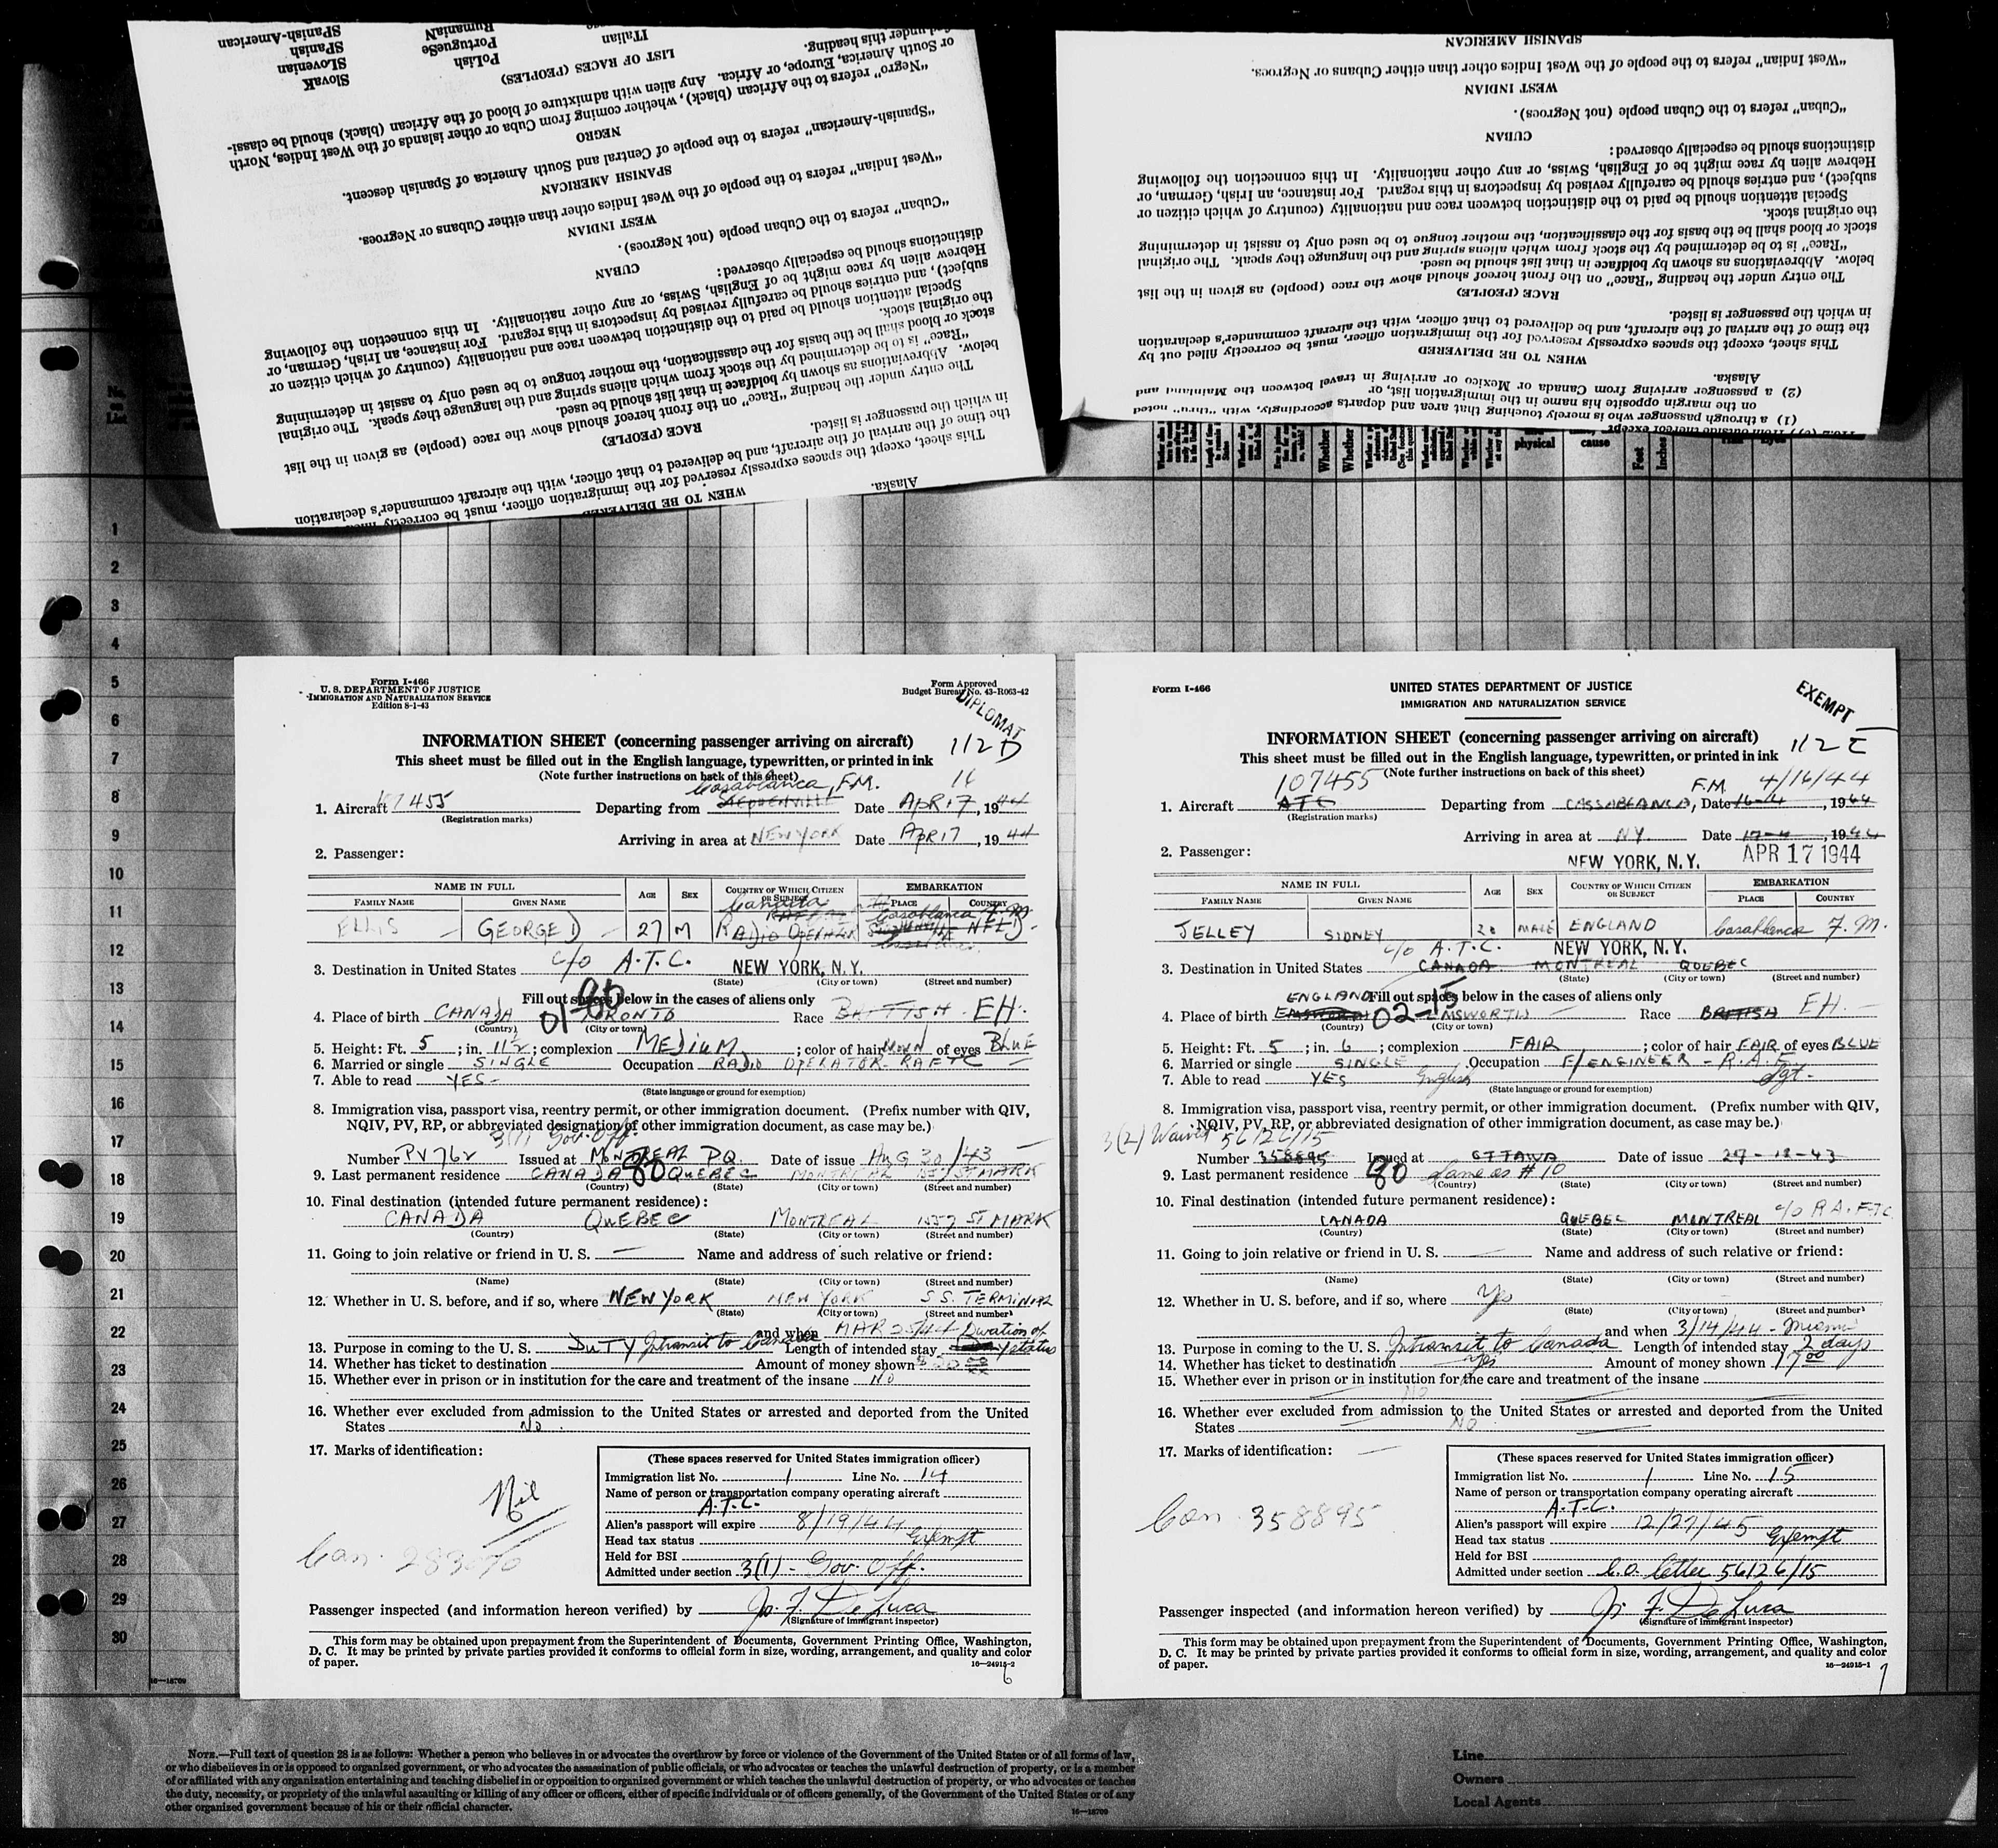 SPanish-American
SPanish
SLovenian
SlovaK
RumaniaN
PortugueSe
PoLish
ITalian
LIST OF RACES (PEOPLES)
fied under this heading.
or South America, Europe, or Africa. Any alien with admixture of blood of the African (black) should be classi-
"Negro" refers to the African (black), whether coming from Cuba or other islands of the West Indies, North
NEGRO
"Spanish-American" refers to the people of Central and South America of Spanish descent.
SPANISH AMERICAN
"West Indian" refers to the people of the West Indies other than either Cubans or Negroes.
WEST INDIAN
"Cuban" refers to the Cuban people (not Negroes).
CUBAN
distinctions should be especially observed:
Hebrew alien by race might be of English, Swiss, or any other nationality. In this connection the following
subject), and entries should be carefully revised by inspectors in this regard. For instance, an Irish, German, or
Special attention should be paid to the distinction between race and nationality (country of which citizen or
the original stock.
stock or blood shall be the basis for the classification, the mother tongue to be used only to assist in determining
"Race" is to be determined by the stock from which aliens spring and the language they speak. The original
below. Abbreviations as shown by boldface in that list should be used.
The entry under the heading "Race" on the front hereof should show the race (people) as given in the list
RACE (PEOPLE)
in which the passenger is listed.
the time of the arrival of the aircraft, and be delivered to that officer, with the aircraft commander's declaration
This sheet, except the spaces expressly reserved for the immigration officer, must be correctly filled
WHEN TO BE DELIVERED
Alaska.
SPANISH AMERICAN
"West Indian" refers to the people of the West Indies other than either Cubans or Negroes.
WEST INDIAN
"Cuban" refers to the Cuban people (not Negroes).
CUBAN
distinctions should be especially observed:
Hebrew alien by race might be of English, Swiss, or any other nationality. In this connection the following
subject), and entries should be carefully revised by inspectors in this regard. For instance, an Irish, German, or
Special attention should be paid to the distinction between race and nationality (country of which citizen or
the original stock.
stock or blood shall be the basis for the classification, the mother tongue to be used only to assist in determining
"Race" is to be determined by the stock from which aliens spring and the language they speak. The original
below. Abbreviations as shown by boldface in that list should be used.
The entry under the heading "Race" on the front hereof should show the race (people) as given in the list
RACE (PEOPLE)
in which the passenger is listed.
the time of the arrival of the aircraft, and be delivered to that officer, with the aircraft commander's declaration
This sheet, except the spaces expressly reserved for the immigration officer, must be correctly filled out by
WHEN TO BE DELIVERED
Alaska.
(2) a passenger arriving from Canada or Mexico or arriving in travel between the Mainland and
on the margin opposite his name in the immigration list, or
(1) a through passenger who is merely touching that area and departs accordingly, with "thru" noted
Whether
Whether
physical
cause
Feet
Inches
1
2
3
4
5
6
7
8
9
10
11
12
13
14
15
16
17
18
19
20
21
22
23
24
25
26
27
28
29
30
16—18709
Form I-466
U. S. DEPARTMENT OF JUSTICE
IMMIGRATION AND NATURALIZATION SERVICE
Edition 8-1-43
Form Approved
Budget Bureau No. 43-R063-42
DIPLOMAT
112 D
INFORMATION SHEET (concerning passenger arriving on aircraft)
This sheet must be filled out in the English language, typewritten, or printed in ink
(Note further instructions on back of this sheet)
Casablanca, F.M. 16
1. Aircraft K7455 Departing from Date APR 17, 1944
(Registration marks)
Arriving in area at NEW YORK Date APR 17, 1944
2. Passenger:
NAME IN FULL AGE SEX COUNTRY OF WHICH CITIZEN OR SUBJECT EMBARKATION
FAMILY NAME GIVEN NAME PLACE COUNTRY
Canada Casablanca F.M.
ELLIS GEORGE D 27 M RADIO OPERATOR NFLD.
3. Destination in United States c/o A.T.C. NEW YORK, N.Y.
(State) (City or town) (Street and number)
Fill out spaces below in the cases of aliens only
01-80
4. Place of birth CANADA TORONTO Race BRITISH EH.
(Country) (City or town)
5. Height: Ft. 5; in. 11½; complexion MEDIUM; color of hair BROWN of eyes BLUE
6. Married or single SINGLE Occupation RADIO OPERATOR - RAFTC
7. Able to read YES -
(State language or ground for exemption)
8. Immigration visa, passport visa, reentry permit, or other immigration document. (Prefix number with QIV,
NQIV, PV, RP, or abbreviated designation of other immigration document, as case may be.)
3(1) Gov. Off.
Number PV762 Issued at MONTREAL P.Q. Date of issue AUG 30/43
9. Last permanent residence CANADA 80 QUEBEC MONTREAL 1857 ST MARK
(Country) (State) (City or town) (Street and number)
10. Final destination (intended future permanent residence):
CANADA QUEBEC MONTREAL 1857 ST MARK
(Country) (State) (City or town) (Street and number)
11. Going to join relative or friend in U. S. — Name and address of such relative or friend:
(Name) (State) (City or town) (Street and number)
12. Whether in U. S. before, and if so, where NEW YORK NEW YORK S.S. TERMINAL
(State) (City or town) (Street and number)
and when MAR 25/44 Duration of
13. Purpose in coming to the U. S. DUTY Intransit to Canada Length of intended stay status
14. Whether has ticket to destination Amount of money shown
15. Whether ever in prison or in institution for the care and treatment of the insane NO
16. Whether ever excluded from admission to the United States or arrested and deported from the United
States No.
17. Marks of identification:
Nil
Can. 283070
(These spaces reserved for United States immigration officer)
Immigration list No. 1 Line No. 14
Name of person or transportation company operating aircraft
A.T.C.
Alien's passport will expire 8/19/44
Head tax status Exempt
Held for BSI
Admitted under section 3(1) - Gov. Off.
Passenger inspected (and information hereon verified) by J. F. De Luca
(Signature of immigrant inspector)
This form may be obtained upon prepayment from the Superintendent of Documents, Government Printing Office, Washington,
D. C. It may be printed by private parties provided it conforms to official form in size, wording, arrangement, and quality and color
of paper.
16—24915-2
6
Form I-466
UNITED STATES DEPARTMENT OF JUSTICE
IMMIGRATION AND NATURALIZATION SERVICE
EXEMPT
112 E
INFORMATION SHEET (concerning passenger arriving on aircraft)
This sheet must be filled out in the English language, typewritten, or printed in ink
(Note further instructions on back of this sheet)
107455 F.M. 4/16/44
1. Aircraft ATC Departing from CASSABLANCA, Date 16-4, 1944
(Registration marks)
Arriving in area at NY. Date 17-4, 1944
2. Passenger: NEW YORK, N.Y. APR 17 1944
NAME IN FULL AGE SEX COUNTRY OF WHICH CITIZEN OR SUBJECT EMBARKATION
FAMILY NAME GIVEN NAME PLACE COUNTRY
JELLEY SIDNEY 20 MALE ENGLAND Casablanca F.M.
c/o A.T.C. NEW YORK, N.Y.
3. Destination in United States CANADA MONTREAL QUEBEC
(State) (City or town) (Street and number)
ENGLAND Fill out spaces below in the cases of aliens only
02-15
4. Place of birth EMSWORTH EMSWORTH Race BRITISH EH.
(Country) (City or town)
5. Height: Ft. 5; in. 6; complexion FAIR; color of hair FAIR of eyes BLUE
6. Married or single SINGLE Occupation F/ENGINEER - R.A.F.
7. Able to read YES English Sgt.
(State language or ground for exemption)
8. Immigration visa, passport visa, reentry permit, or other immigration document. (Prefix number with QIV,
NQIV, PV, RP, or abbreviated designation of other immigration document, as case may be.)
3(2) Waived 56126/15
Number 358895 Issued at OTTAWA Date of issue 27-12-43
9. Last permanent residence 80 Same as #10
(Country) (State) (City or town) (Street and number)
10. Final destination (intended future permanent residence):
CANADA QUEBEC MONTREAL c/o R.A.F.T.C.
(Country) (State) (City or town) (Street and number)
11. Going to join relative or friend in U. S. — Name and address of such relative or friend:
(Name) (State) (City or town) (Street and number)
12. Whether in U. S. before, and if so, where Yes
(State) (City or town) (Street and number)
and when 3/14/44 - Miami
13. Purpose in coming to the U. S. Intransit to Canada Length of intended stay 2 days
14. Whether has ticket to destination Yes Amount of money shown 17.00
15. Whether ever in prison or in institution for the care and treatment of the insane
NO
16. Whether ever excluded from admission to the United States or arrested and deported from the United
States NO
17. Marks of identification: —
Can. 358895
(These spaces reserved for United States immigration officer)
Immigration list No. 1 Line No. 15
Name of person or transportation company operating aircraft
A.T.C.
Alien's passport will expire 12/27/45
Head tax status Exempt
Held for BSI
Admitted under section C.O. letter 56126/15
Passenger inspected (and information hereon verified) by J. F. De Luca
(Signature of immigrant inspector)
This form may be obtained upon prepayment from the Superintendent of Documents, Government Printing Office, Washington,
D. C. It may be printed by private parties provided it conforms to official form in size, wording, arrangement, and quality and color
of paper.
16—24915-1
7
NOTE.—Full text of question 28 is as follows: Whether a person who believes in or advocates the overthrow by force or violence of the Government of the United States or of all forms of law,
or who disbelieves in or is opposed to organized government, or who advocates the assassination of public officials, or who advocates or teaches the unlawful destruction of property, or is a member
of or affiliated with any organization entertaining and teaching disbelief in or opposition to organized government or which teaches the unlawful destruction of property, or who advocates or teaches
the duty, necessity, or propriety of the unlawful assaulting or killing of any officer or officers, either of specific individuals or of officers generally, of the Government of the United States or of any
other organized government because of his or their official character.
16—18709
Line
Owners
Local Agents